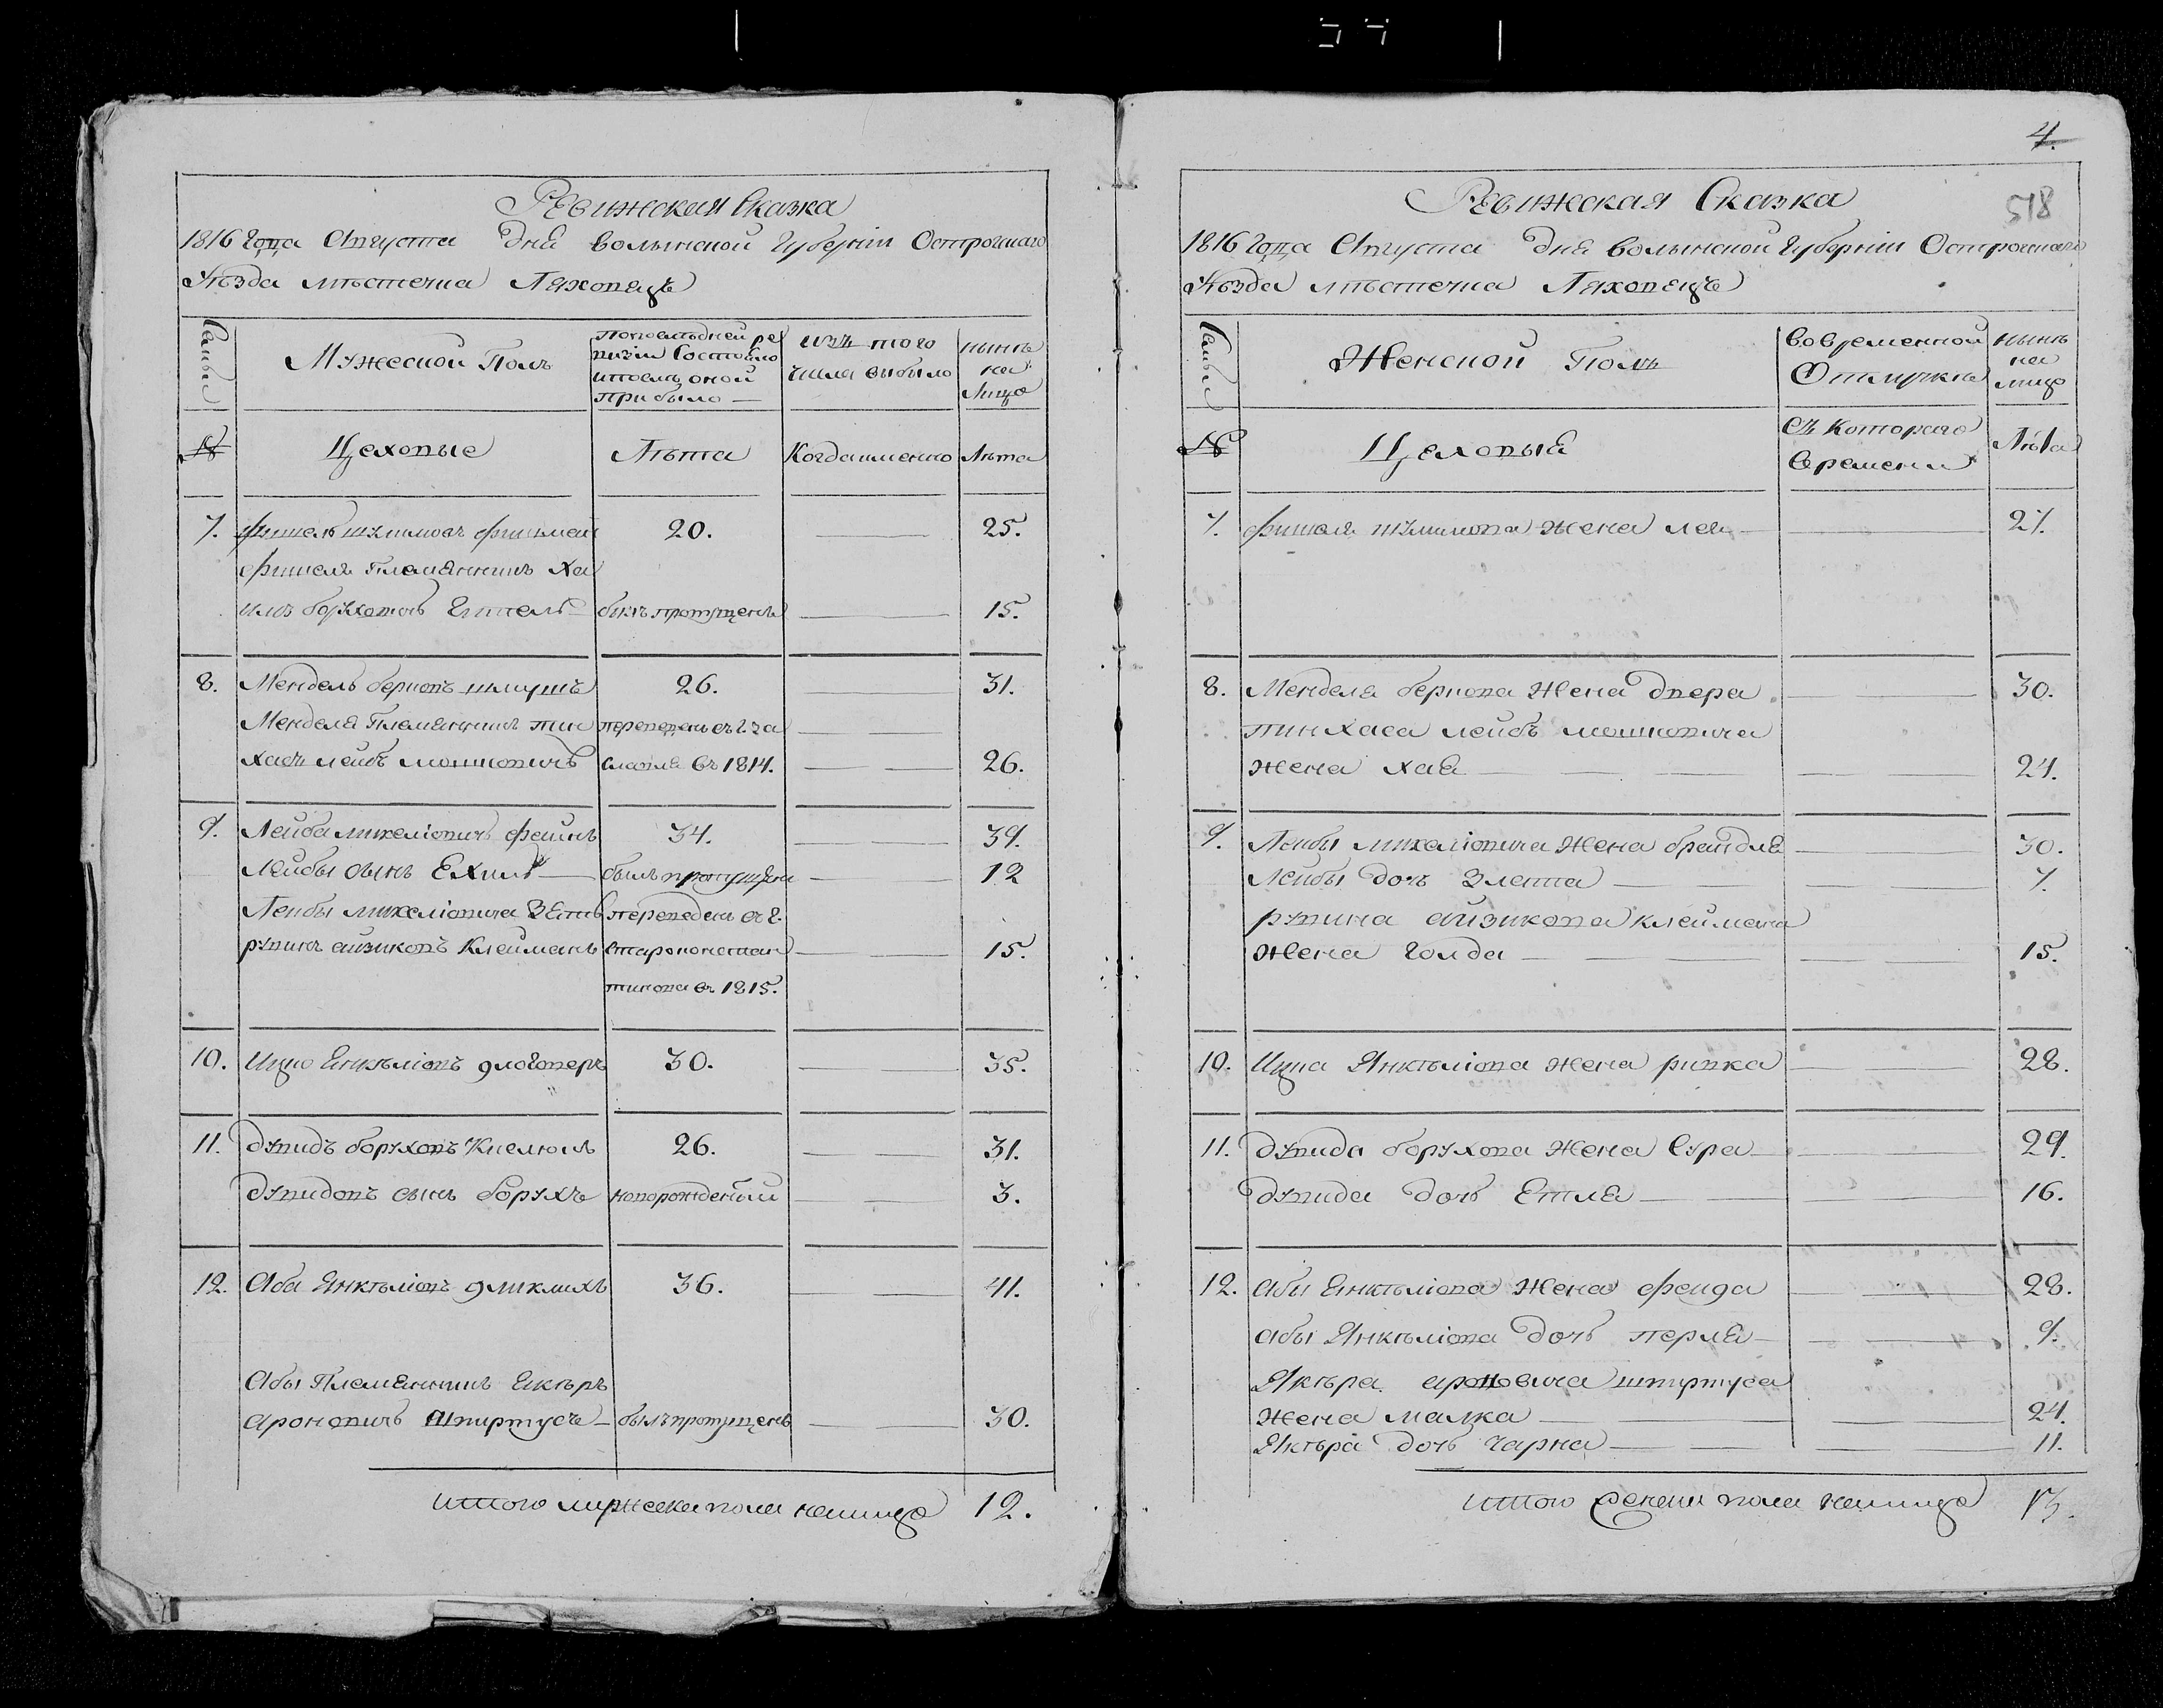 Ревижская Сказка
1816 года Августа Дня Волынской Губерніи Острогскаго
Уѣзда мѣстечка Ляховецъ
Мужеской Полъ
По последней ре
визіи Состояло
и после оной
Прибыло
изъ того
числа выбыло
нынѣ
на
Лицо
№
Цеховые
Лѣта
Когда именно
Лѣта
7. Фишель Шулимовъ Фишман 20. 25.
Фишеля Племянникъ Ха
имъ Борухович былъ пропущенъ 15.
8. Мендель Берковъ 26. 31.
Менделя Племянникъ Пин переведенъ съ г. За
хасъ Лейбъ Мошковичъ славля въ 1814. 26.
9. Лейба Михеліовичъ Фейинъ 34. 39.
Лейбы сынъ Ехиль былъ пропущен 12
Лейбы Михеліовича Зять переведен съ г.
рувинъ Айзиковъ Клейманъ Староконстан 15.
тинова въ 1815.
10. Ицко Янкѣліовъ 30. 35.
11. Дувидъ Боруховъ 26. 31.
Дувидовъ сынъ Борухъ новорожденый 3.
12. Аба Янкѣліовъ 36. 41.
Абы Племянникъ Якѣръ
Ароновичъ Шпиртусъ былъ пропущенъ 30.
Итого мужеска пола налицо 12.
4.
518
Ревижская Сказка
1816 года Августа Дня Волынской Губерніи Острогскаго
Уѣзда мѣстечка Ляховецъ
Женской Полъ
Во временной
Отлучке
нынѣ
на
лицо
№
Цеховыя
Съ Котораго
Времени
Лѣта
7. Фишеля Шулимова жена Лея 27.
8. Менделя Беркова жена Двера 30.
Пинхаса Лейбъ Мошковича
жена Хая 24.
9. Лейбы Михеліовича жена Брайдля 30.
Лейбы дочь Злата 7.
рувина Айзикова Клеймана
жена Голда 15.
10. Ицка Янкѣліова жена ривка 28.
11. Дувида Борухова жена Сура 29.
Дувида дочь Етля 16.
12. Абы Янкѣліова жена Фейга 28.
Абы Янкѣліова дочь Перля 9.
Якѣра Ароновича Шпиртуса
жена Малка 24.
Якѣра дочь Чарна 11.
Итого Женска пола налицо 13.